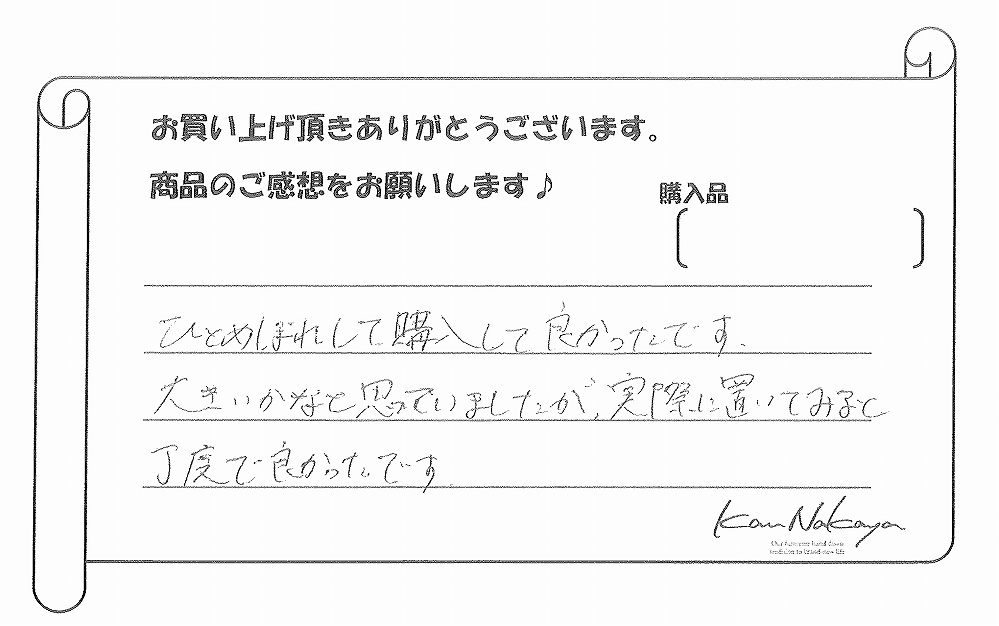 お買い上げ頂きありがとうございます。
商品のご感想をお願いします♪
購入品
ひとめぼれして購入して良かったです.
大きいかなと思っていましたが、実際に置いてみると
丁度で良かったです.
Kan Nakaya
Our furniture hand down
tradition to brand-new life